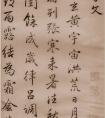 文
玄黃宇宙洪荒日月
列張寒來暑往
閏餘成歲律呂調
雨露結為霜金生